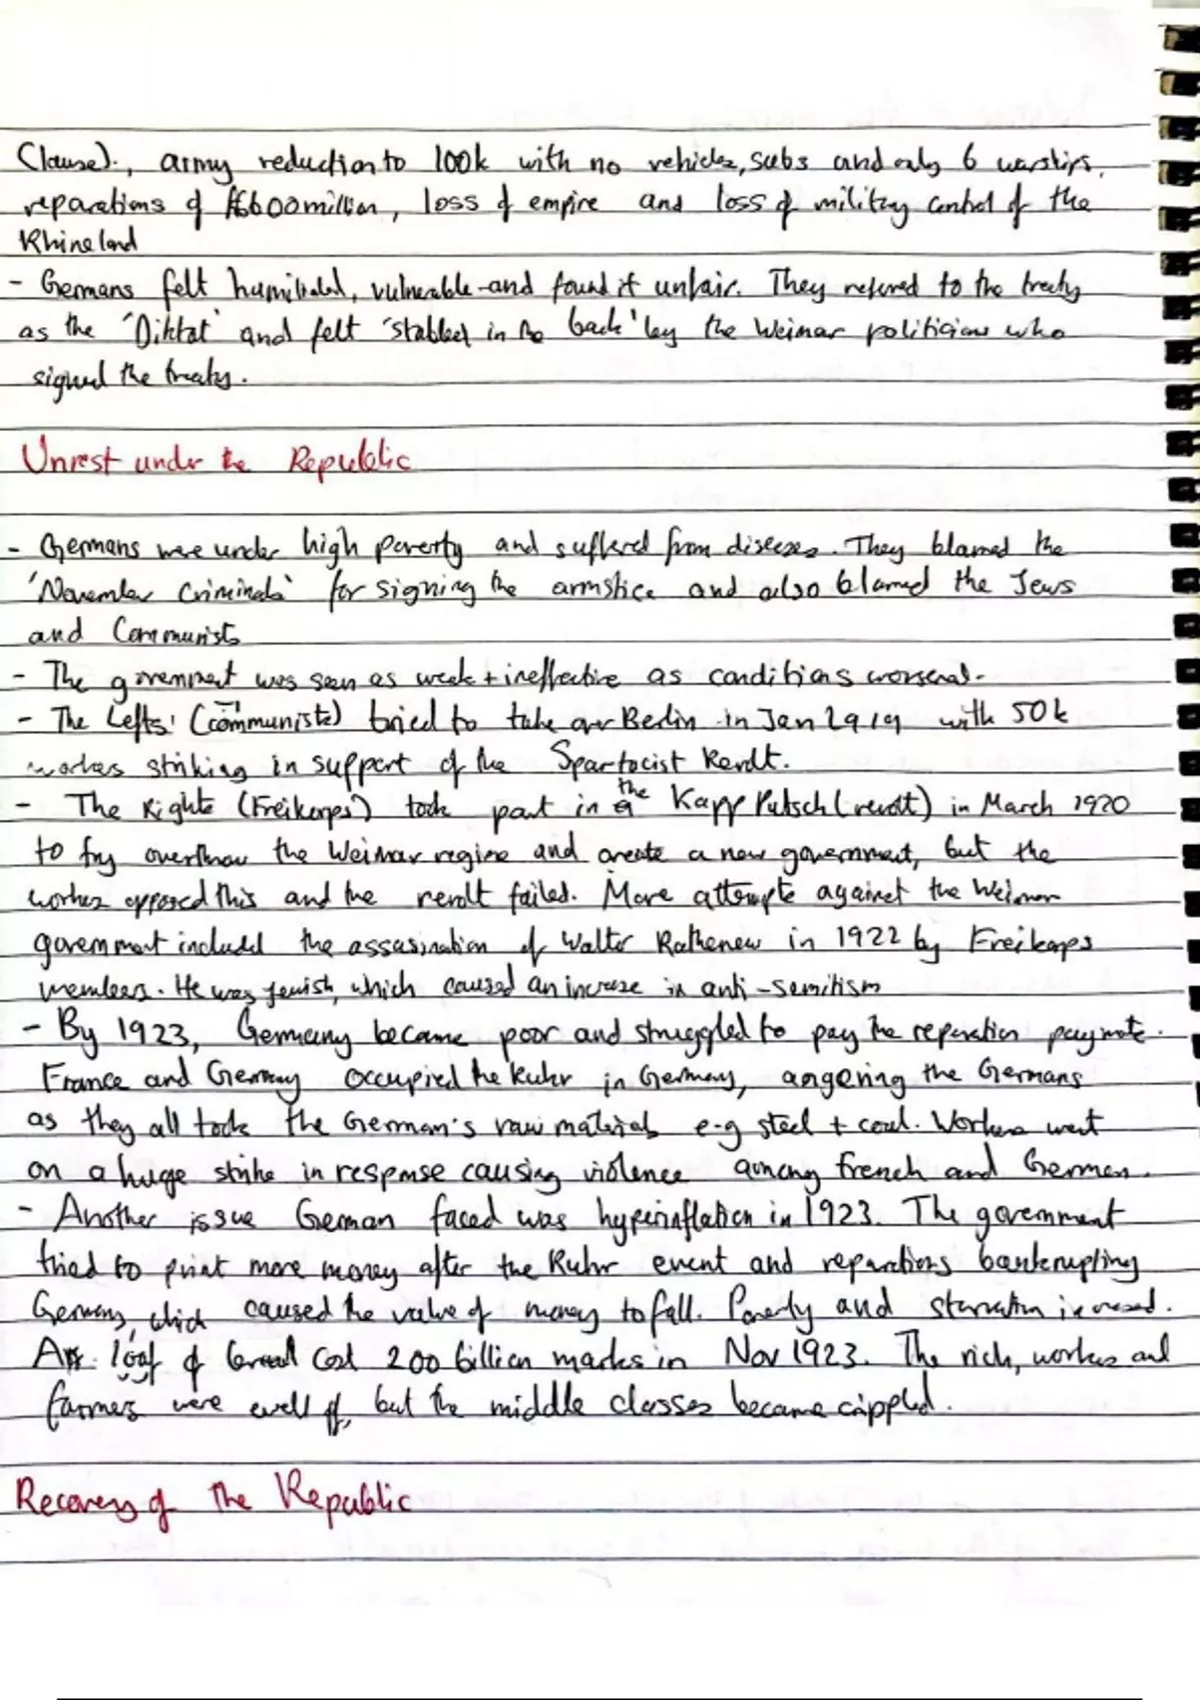 Clause)., army reduction to 100k with no vehicles, subs and only 6 warships,
reparations of £6600 million, loss of empire and loss of military control of the
Rhineland
- Germans felt humiliated, vulnerable and found it unfair. They refered to the treaty
as the 'Diktat' and felt 'stabbed in the back' by the Weimar politicians who
signed the treaty.
Unrest under the Republic
- Germans were under high poverty and suffered from diseases. They blamed the
'November Criminals' for signing the armstice and also blamed the Jews
and Communists
- The government was seen as weak + ineffective as conditions worsened.
- The Lefts' (communists) tried to take over Berlin in Jan 1919 with 50k
workers striking in support of the Spartacist Revolt.
- The Rights (Freikorps') took part in the Kapp Putsch (revolt) in March 1920
to try overthrow the Weimar regime and create a new government, but the
workers opposed this and the revolt failed. More attempts against the Weimar
government included the assasination of Walter Rathenew in 1922 by Freikorps
members. He was jewish, which caused an increase in anti-semitism
- By 1923, Germany became poor and struggled to pay the reparation payments.
France and Germany occupied the Ruhr in Germany, angering the Germans
as they all took the German's raw materials e-g steel + coal. Workers went
on a huge strike in response causing violence among french and German.
- Another issue German faced was hyperinflation in 1923. The government
tried to print more money after the Ruhr event and reparations bankrupting
Germany, which caused the value of money to fall. Poverty and starvation increased.
A loaf of bread cost 200 billion marks in Nov 1923. The rich, workers and
farmers were well off, but the middle classes became crippled.
Recovery of the Republic